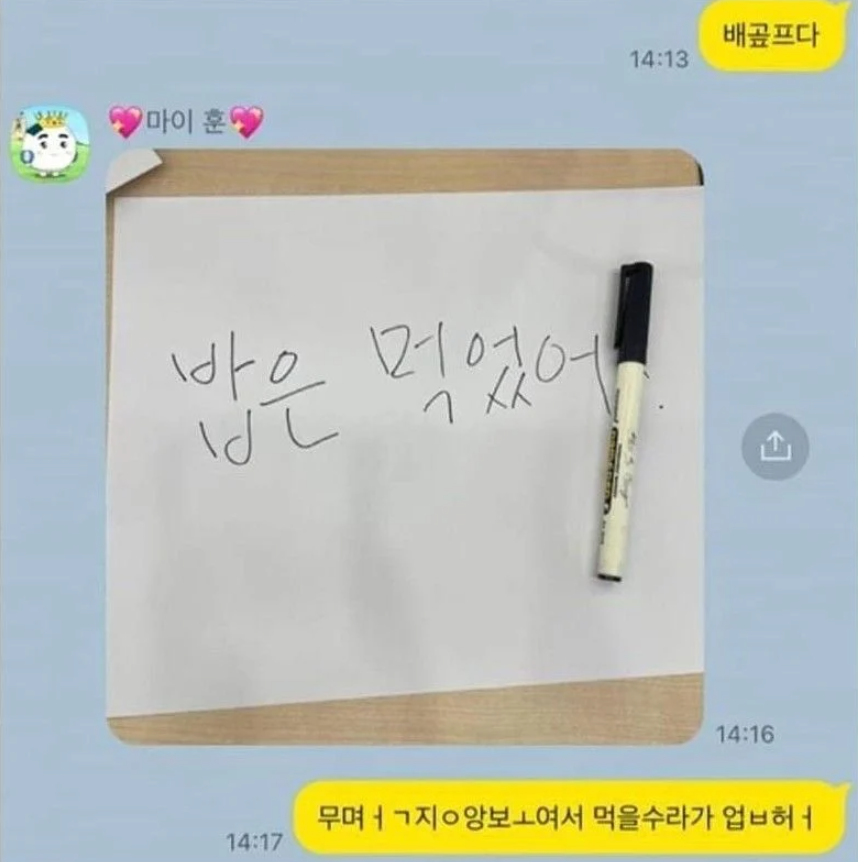 배곺프다
14:13
💖마이 훈💖
밥은 먹었어
14:16
무며ㅓㄱ지ㅇ앙보ㅗ여서 먹을수라가 업ㅂ허ㅓ
14:17